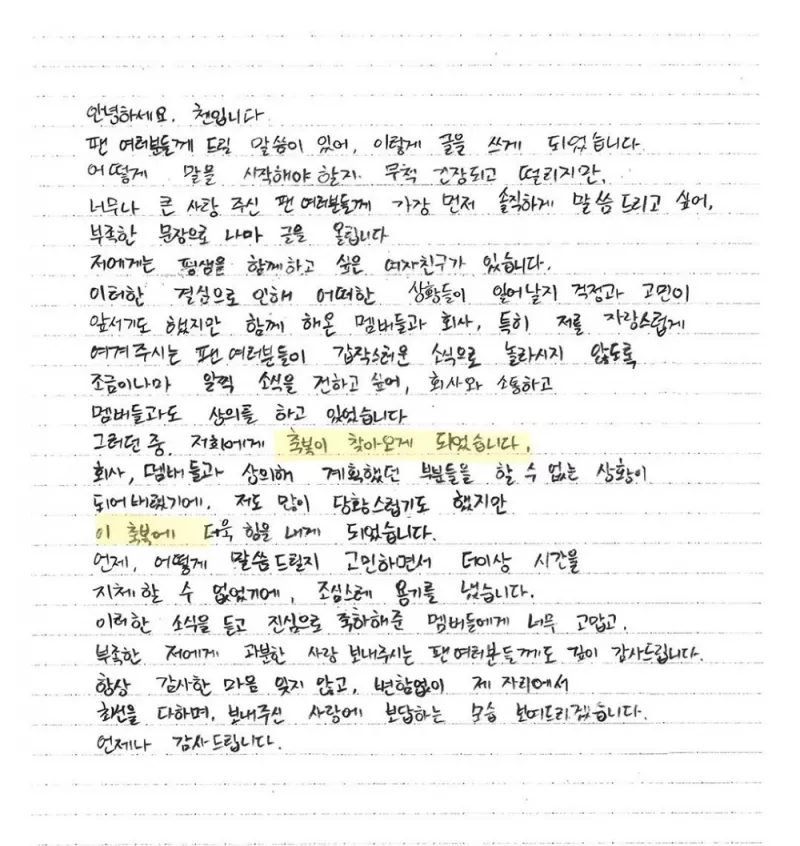 안녕하세요. 첸입니다
팬 여러분들께 드릴 말씀이 있어, 이렇게 글을 쓰게 되었습니다
어떻게 말을 시작해야 할지 무척 긴장되고 떨리지만,
너무나 큰 사랑 주신 팬 여러분들께 가장 먼저 솔직하게 말씀드리고 싶어,
부족한 문장으로 나마 글을 올립니다
저에게는 평생을 함께하고 싶은 여자친구가 있습니다.
이러한 결심으로 인해 어떠한 상황들이 일어날지 걱정과 고민이
앞서기도 했지만 함께 해온 멤버들과 회사, 특히 저를 자랑스럽게
여겨주시는 팬 여러분들이 갑작스러운 소식으로 놀라시지 않도록
조금이나마 일찍 소식을 전하고 싶어, 회사와 소통하고
멤버들과도 상의를 하고 있었습니다
그러던 중, 저희에게 축복이 찾아오게 되었습니다.
회사, 멤버들과 상의해 계획했던 부분들을 할 수 없는 상황이
되어버렸기에, 저도 많이 당황스럽기도 했지만
이 축복에 더욱 힘을 내게 되었습니다.
언제, 어떻게 말씀드릴지 고민하면서 더이상 시간을
지체할 수 없었기에, 조심스레 용기를 냈습니다.
이러한 소식을 듣고 진심으로 축하해준 멤버들에게 너무 고맙고,
부족한 저에게 과분한 사랑 보내주시는 팬여러분들께도 깊이 감사드립니다.
항상 감사한 마음 잊지 않고, 변함없이 제 자리에서
최선을 다하며, 보내주신 사랑에 보답하는 모습 보여드리겠습니다.
언제나 감사드립니다.